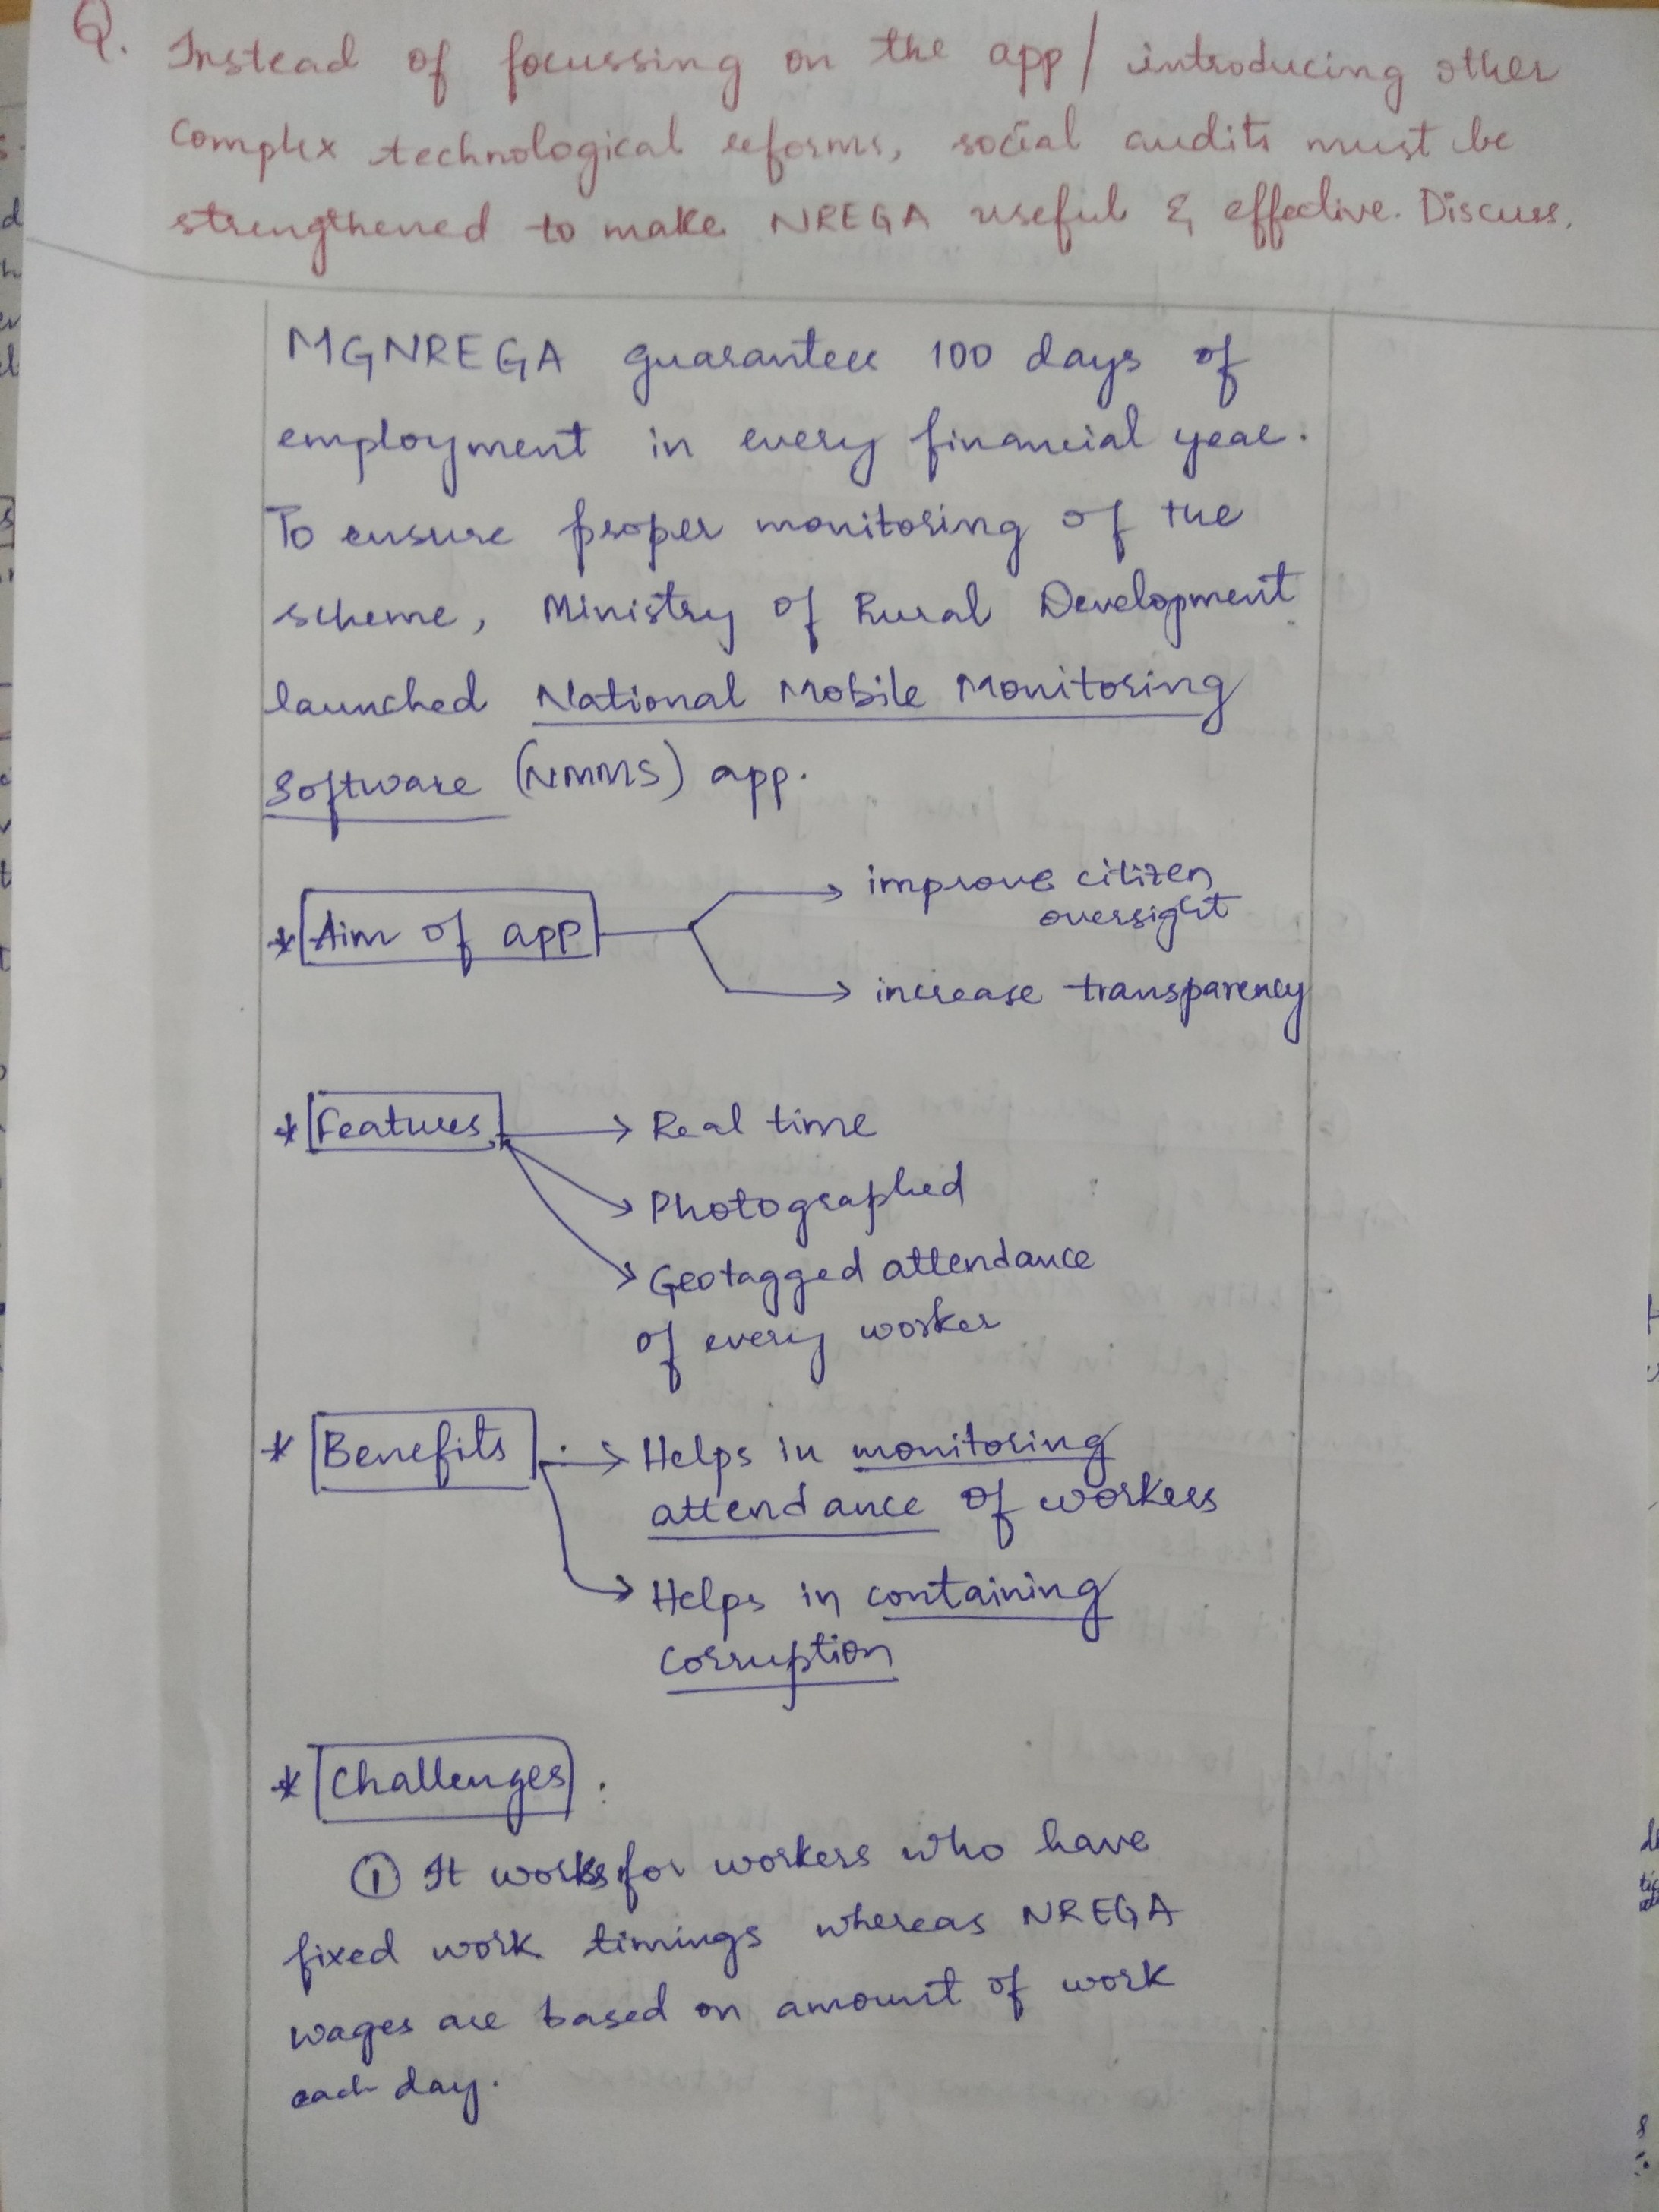 Q. Instead of focussing on the app / introducing other
complex technological reforms, social audits must be
strengthened to make NREGA useful & effective. Discuss.
MGNREGA guarantees 100 days of
employment in every financial year.
To ensure proper monitoring of the
scheme, Ministry of Rural Development
launched National Mobile Monitoring
Software (NMMS) app.
* Aim of app → improve citizen
oversight
→ increase transparency
* Features → Real time
→ Photographed
→ Geotagged attendance
of every worker
* Benefits → Helps in monitoring
attendance of workers
→ Helps in containing
corruption
* Challenges :
① It works for workers who have
fixed work timings whereas NREGA
wages are based on amount of work
each day.